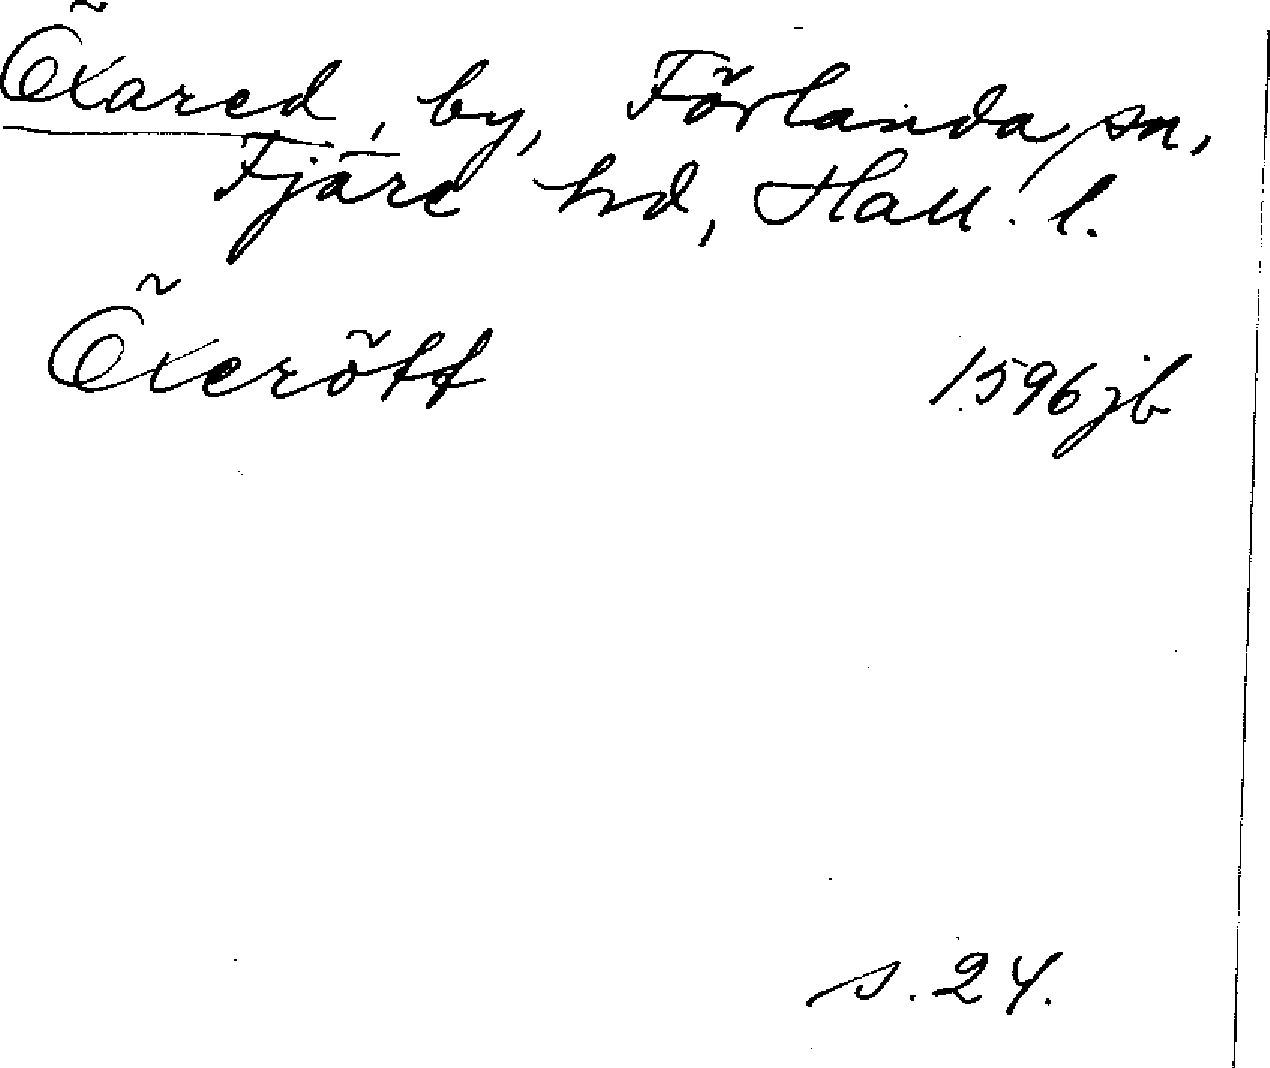 Öxared, by, Förlanda sn,
Fjäre hd, Hall. l.
Öxerött 1596 jb
s. 24.